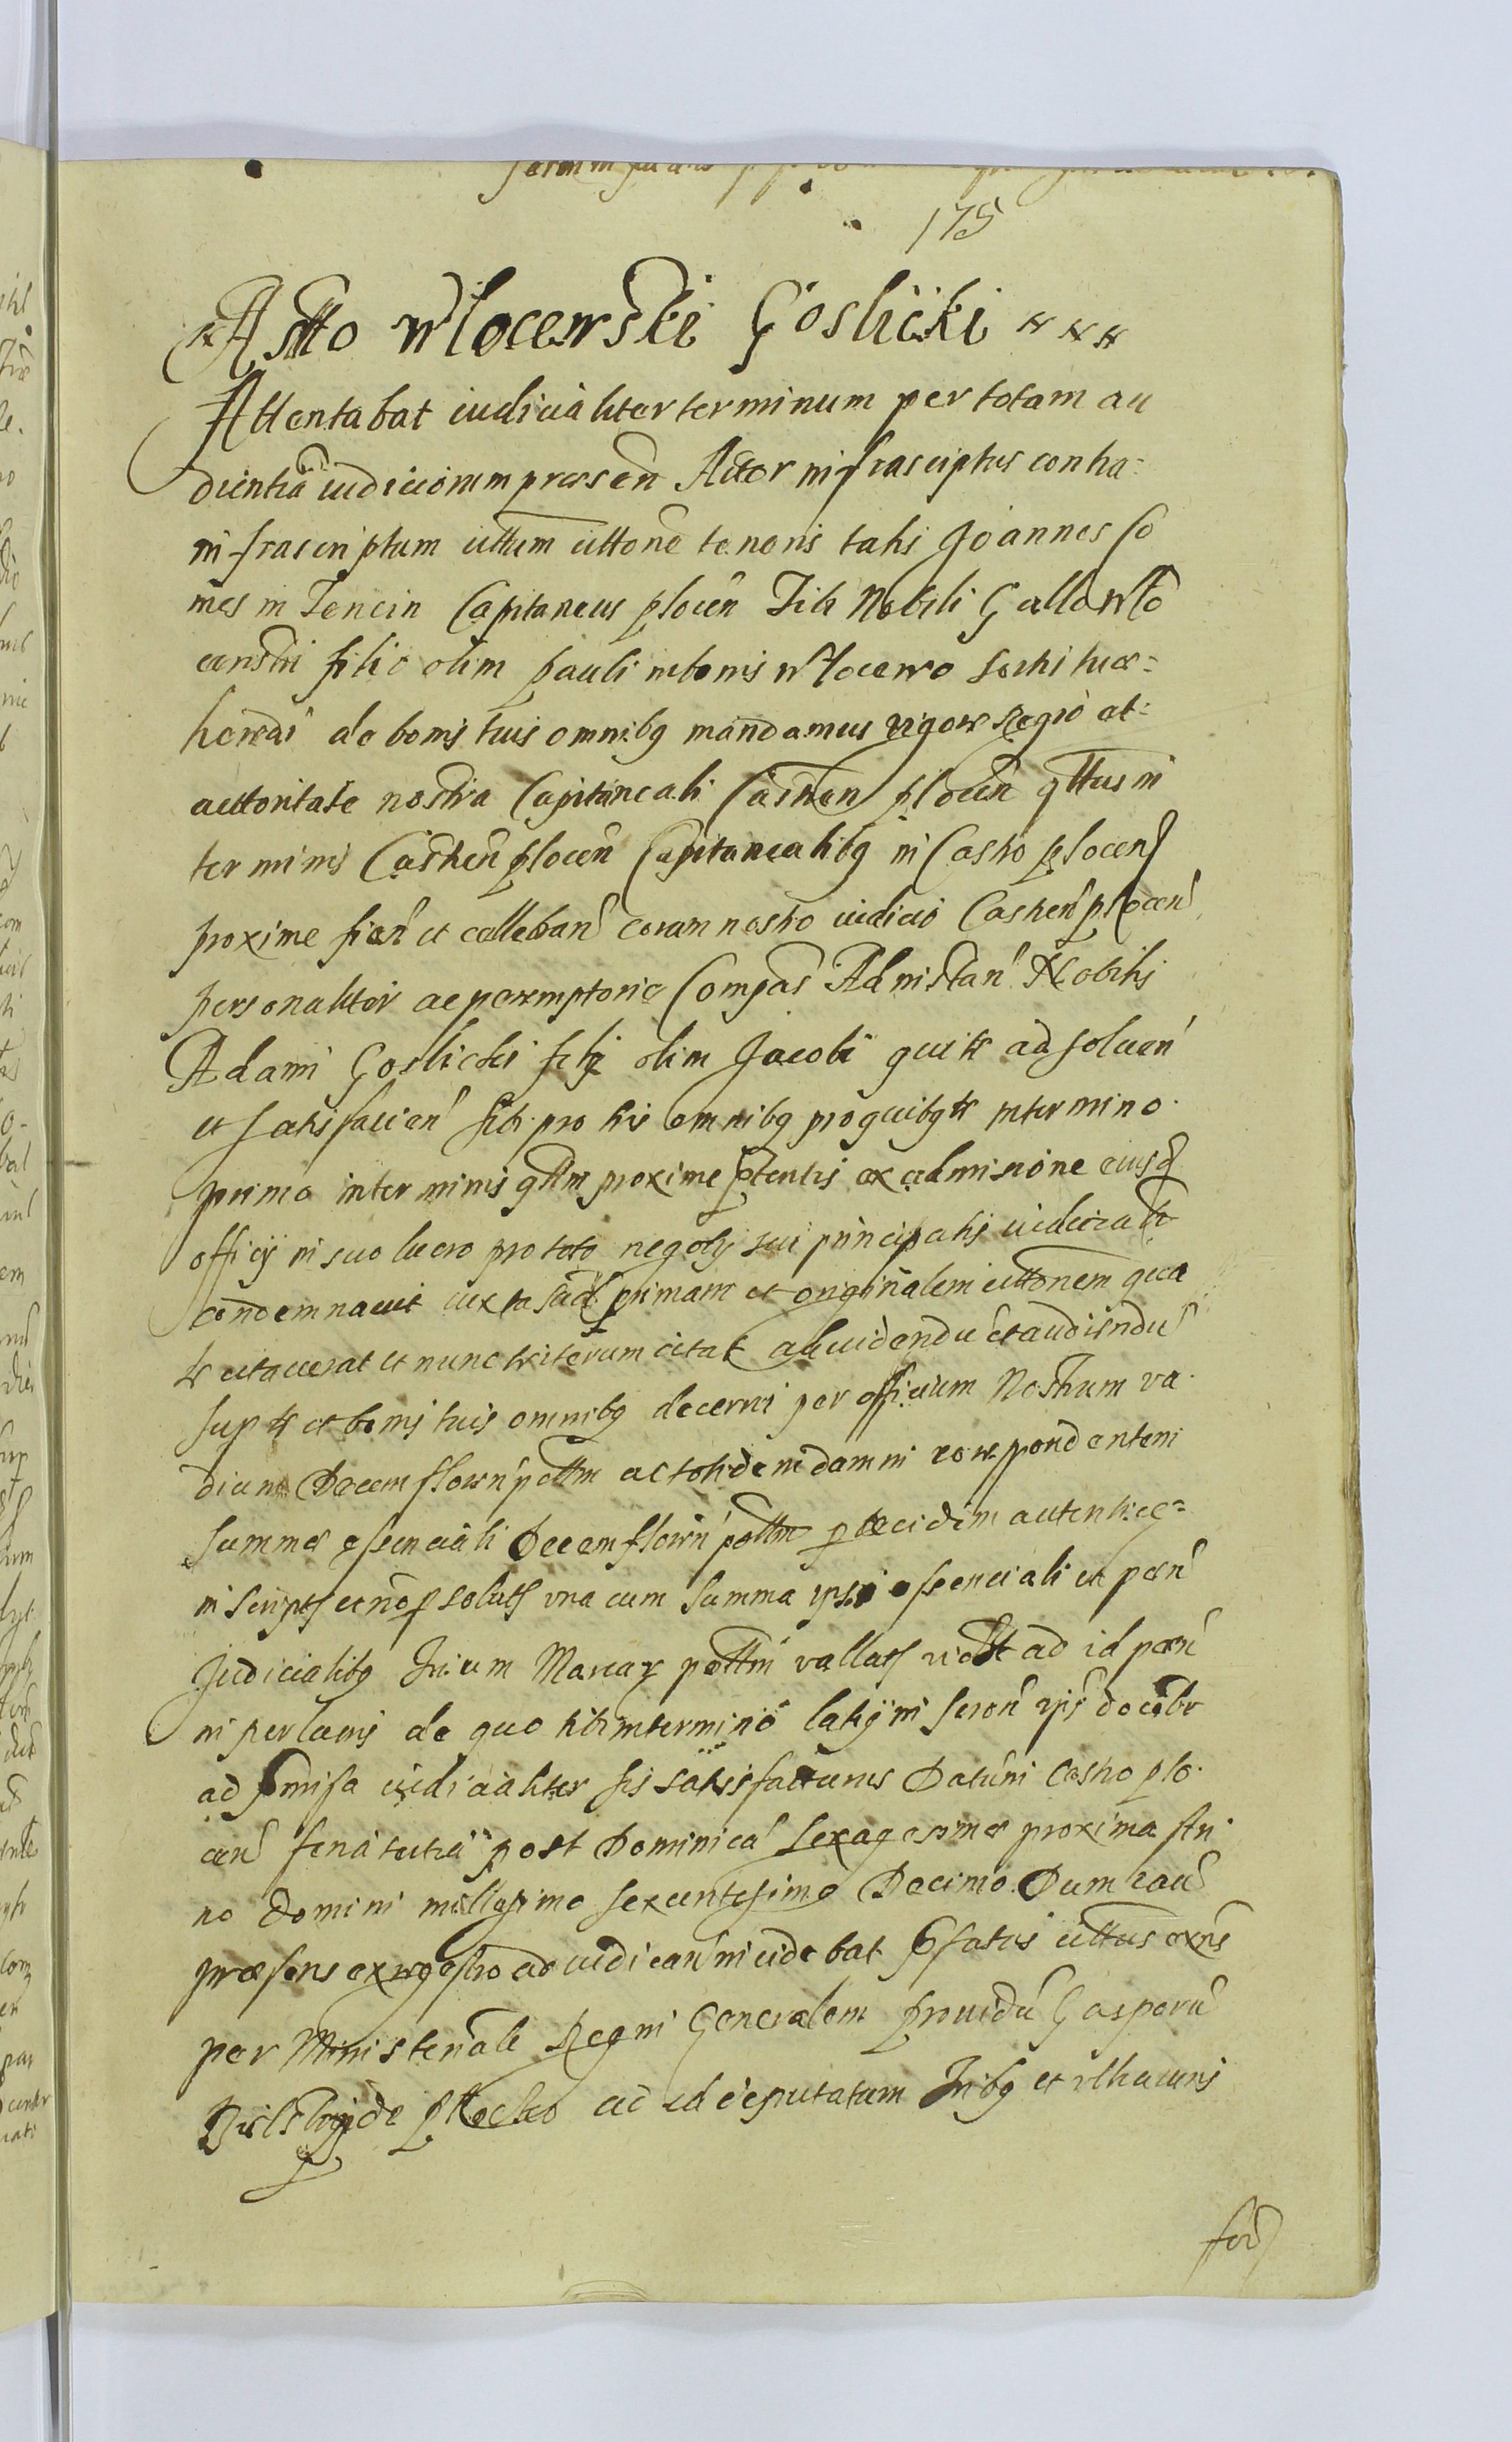 175
Astto Wlocewski Goslicki
Attentabat iudicialiter terminum per totam au
dientiã iudiciorum præsen Actor infrascriptus contra
infrascriptum cittum cittone tenoris talis Joannes Co
mes in Tencin Capitaneus plocen Tibi Nobili Gallo Wlo
cewski filio olim Pauli in bonis Wlocewo sorti tuæ
heredi de bonis tuis omnibq mandamus vigore Regio et
auttoritate nostra Capitaneali Castren plocen qttus in
terminis Castren plocen Capitanealibq in Castro plocen
proxime fien et cellebran coram nostro iudicio Castren plocen
personaliter ac peremptorie Compas Ad instan Nobilis
Adami Goslicki filij olim Jacobi qui te ad soluen
et satisfacien sibi pro his omnibq pro quibq te in termino
primo in terminis qttm proxime ptentis ex admissione eiusq
officij in suo lucro pro toto negotij sui principalis iudicialr
condemnauit iuxta suã primam et originalem cittonem qua
te citauerat et nunc te iterum citat ad uidendu et audiendu
sup te et bonis tuis omnibq decerni per officium Nostrum va
dium Decem floren pottm ac totidem damni correspondentem
summæ essenciali Decem floren pottm p te eidem autentice
inscripts et no p soluts vna cum summa ipsi essenciali et pæn
Judicialibq Trium Marcar pottm vallats videlt ad id pæn
in per lucris de quo tibi in termino latij inferen ips docebr
ad pmissa iudicialiter sis satisfacturus Datu in Castro plo
cen feria tertia post Dominica sexagesimæ proxima An
no Domini millesimo sexcentesimo Decimo Dum cau
præsens ex regestro ad iudican incidebat pfatus cittus exns
per Ministeriale Regni Generalem prouidu Gasparu
de Plocko ad id deputatum Tribq et vltra uris